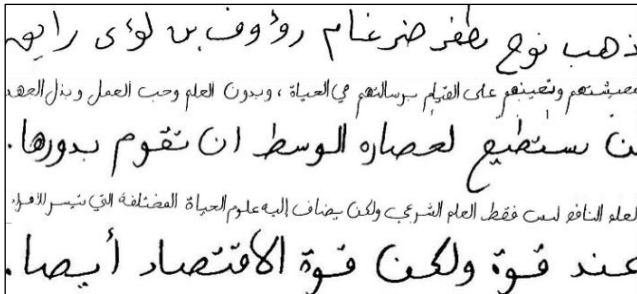 ذهب نوح بظفر ضرغام رؤوف بن لؤى رايق
معيشتهم وتعينهم على القيام برسالتهم في الحياة ، وبدون العلم وحب العمل وبذل الجهد
لن نستطيع لحصاره الوسط ان تقوم بدورها.
العلم النافع ليس فقط العلم الشرعي ولكن يضاف إليه علوم الحياة المختلفة التي تيسر للأفراد
عند قوة ولكن قوة الاقتصاد أيضا.